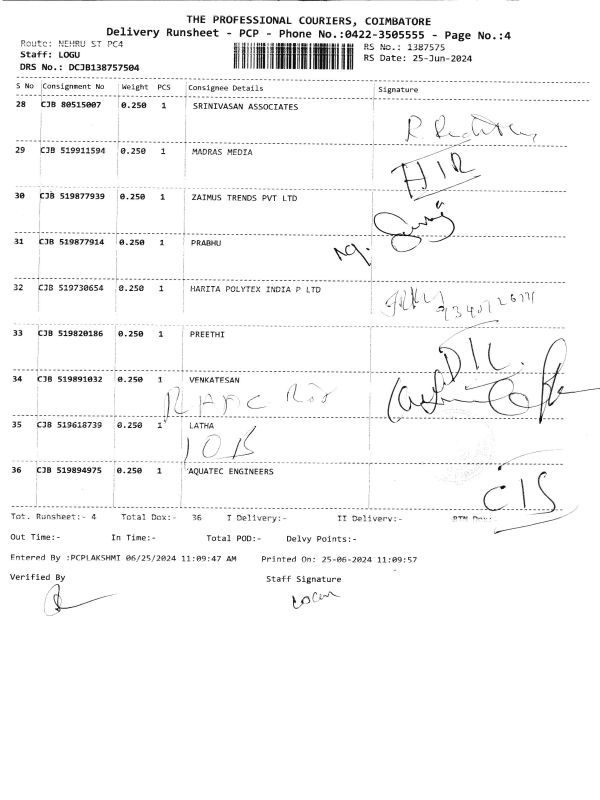 THE PROFESSIONAL COURIERS, COIMBATORE
Delivery Runsheet - PCP - Phone No.:0422-3505555 - Page No.:4
Route: NEHRU ST PC4
RS No.: 1387575
Staff: LOGU
RS Date: 25-Jun-2024
DRS No.: DCJB138757504
S No Consignment No Weight PCS Consignee Details Signature
28 CJB 80515007 0.250 1 SRINIVASAN ASSOCIATES
29 CJB 519911594 0.250 1 MADRAS MEDIA
30 CJB 519877939 0.250 1 ZAIMUS TRENDS PVT LTD
31 CJB 519877914 0.250 1 PRABHU
32 CJB 519730654 0.250 1 HARITA POLYTEX INDIA P LTD
33 CJB 519820186 0.250 1 PREETHI
D/L
34 CJB 519891032 0.250 1 VENKATESAN
35 CJB 519618739 0.250 1 LATHA
IOB
36 CJB 519894975 0.250 1 AQUATEC ENGINEERS
C/S
Tot. Runsheet:- 4 Total Dox:- 36 I Delivery:- II Delivery:- RTN Dox:-
Out Time:- In Time:- Total POD:- Delvy Points:-
Entered By :PCPLAKSHMI 06/25/2024 11:09:47 AM Printed On: 25-06-2024 11:09:57
Verified By Staff Signature